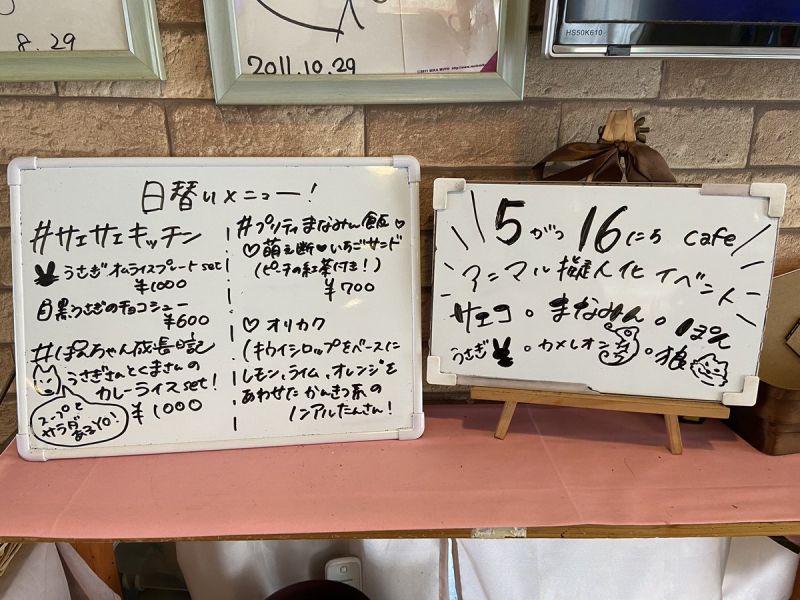 8.29
2011.10.29
HS50K610
日替りメニュー!
#サエサエキッチン
うさぎオムライスプレートset
¥1000
目黒うさぎのチョコシュー
¥600
#ぽんちゃん成長日記
うさぎさんとくまさんの
カレーライスset!
¥1000
スープと
サラダ
あるYO!
#プリティまなみん飯♡
♡萌え断♡いちごサンド
(ピーチの紅茶付き!)
¥700
♡オリカク
(キウイシロップをベースに
レモン、ライム、オレンジを
あわせた かんきつ系の
ノンアルたんさん!
5がつ16にち cafe
アニマル擬人化イベント
サエコ。まなみん。ぽん
うさぎ 。カメレオン 。狼